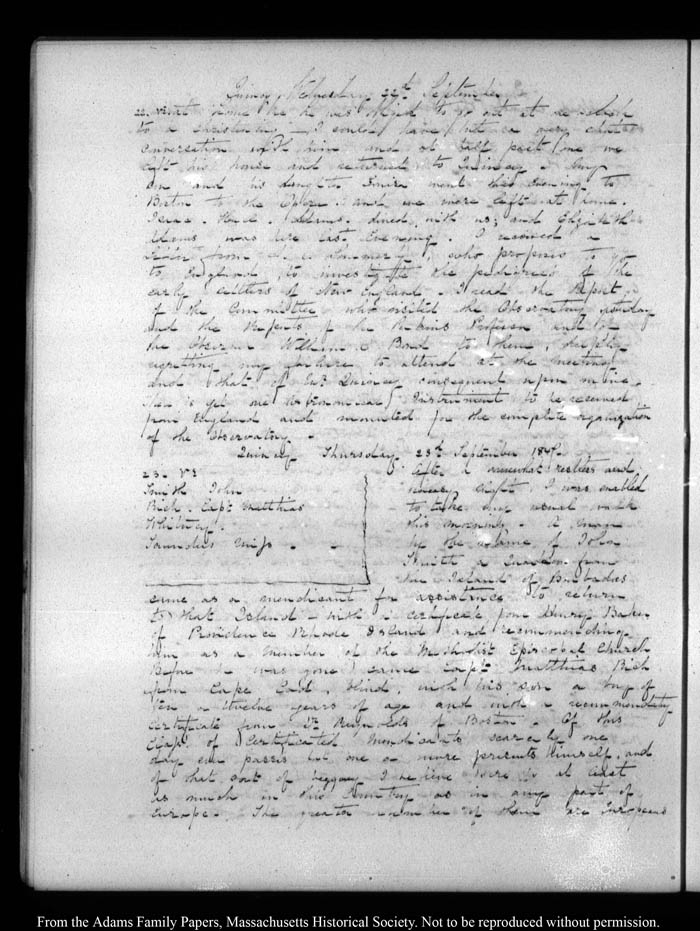 Quincy Wednesday 22d September
22. went home he was obliged to go out at six o'clock
to a christening I could have but a very short
conversation with him and at half past one we
left his house and returned to Quincy. My
Son and his daughter Louisa went this Evening to
Boston to the Opera and we were left at home.
Isaac Hull Adams dined with us, and Elizabeth
Adams was here last Evening. I received a
letter from who proposes to go
to England to investigate the pedigrees of the
early settlers of New England. I read the Report
of the Committee who visited the Observatory yesterday
and the Reports of the Professor and of
the Observer William C Bond to them, deeply
regretting my failure to attend at the meeting
and that of Mr Quincy consequent upon mine.
There is yet one astronomical Instrument to be received
from England and mounted for the complete organization
of the Observatory.
Quincy Thursday 23d September 184
23. V
Smith John
Rich. Capt Matthias
Whitney.
Saunders Miss
After a somewhat restless and
uneasy night I was enabled
to take my usual walk
this morning. A man
by the name of John
Smith a from
the Island of Barbados
came as a mendicant for assistance to return
to that Island with a certificate from Henry Baker
of Providence Rhode Island and recommending
him as a member of the Methodist Episcopal Church
Before he was gone came Capt Matthias Rich
from Cape Cod, blind, with his son a boy of
ten or twelve years of age and with a recommendatory
certificate from Dr of Boston. Of this
Class of Certificated Mendicants scarcely one
day ever passes but one or more presents himself, and
of that sort of beggary I believe there is at least
as much in this Country as in any part of
Europe. The greater number of them are Europeans
From the Adams Family Papers, Massachusetts Historical Society. Not to be reproduced without permission.